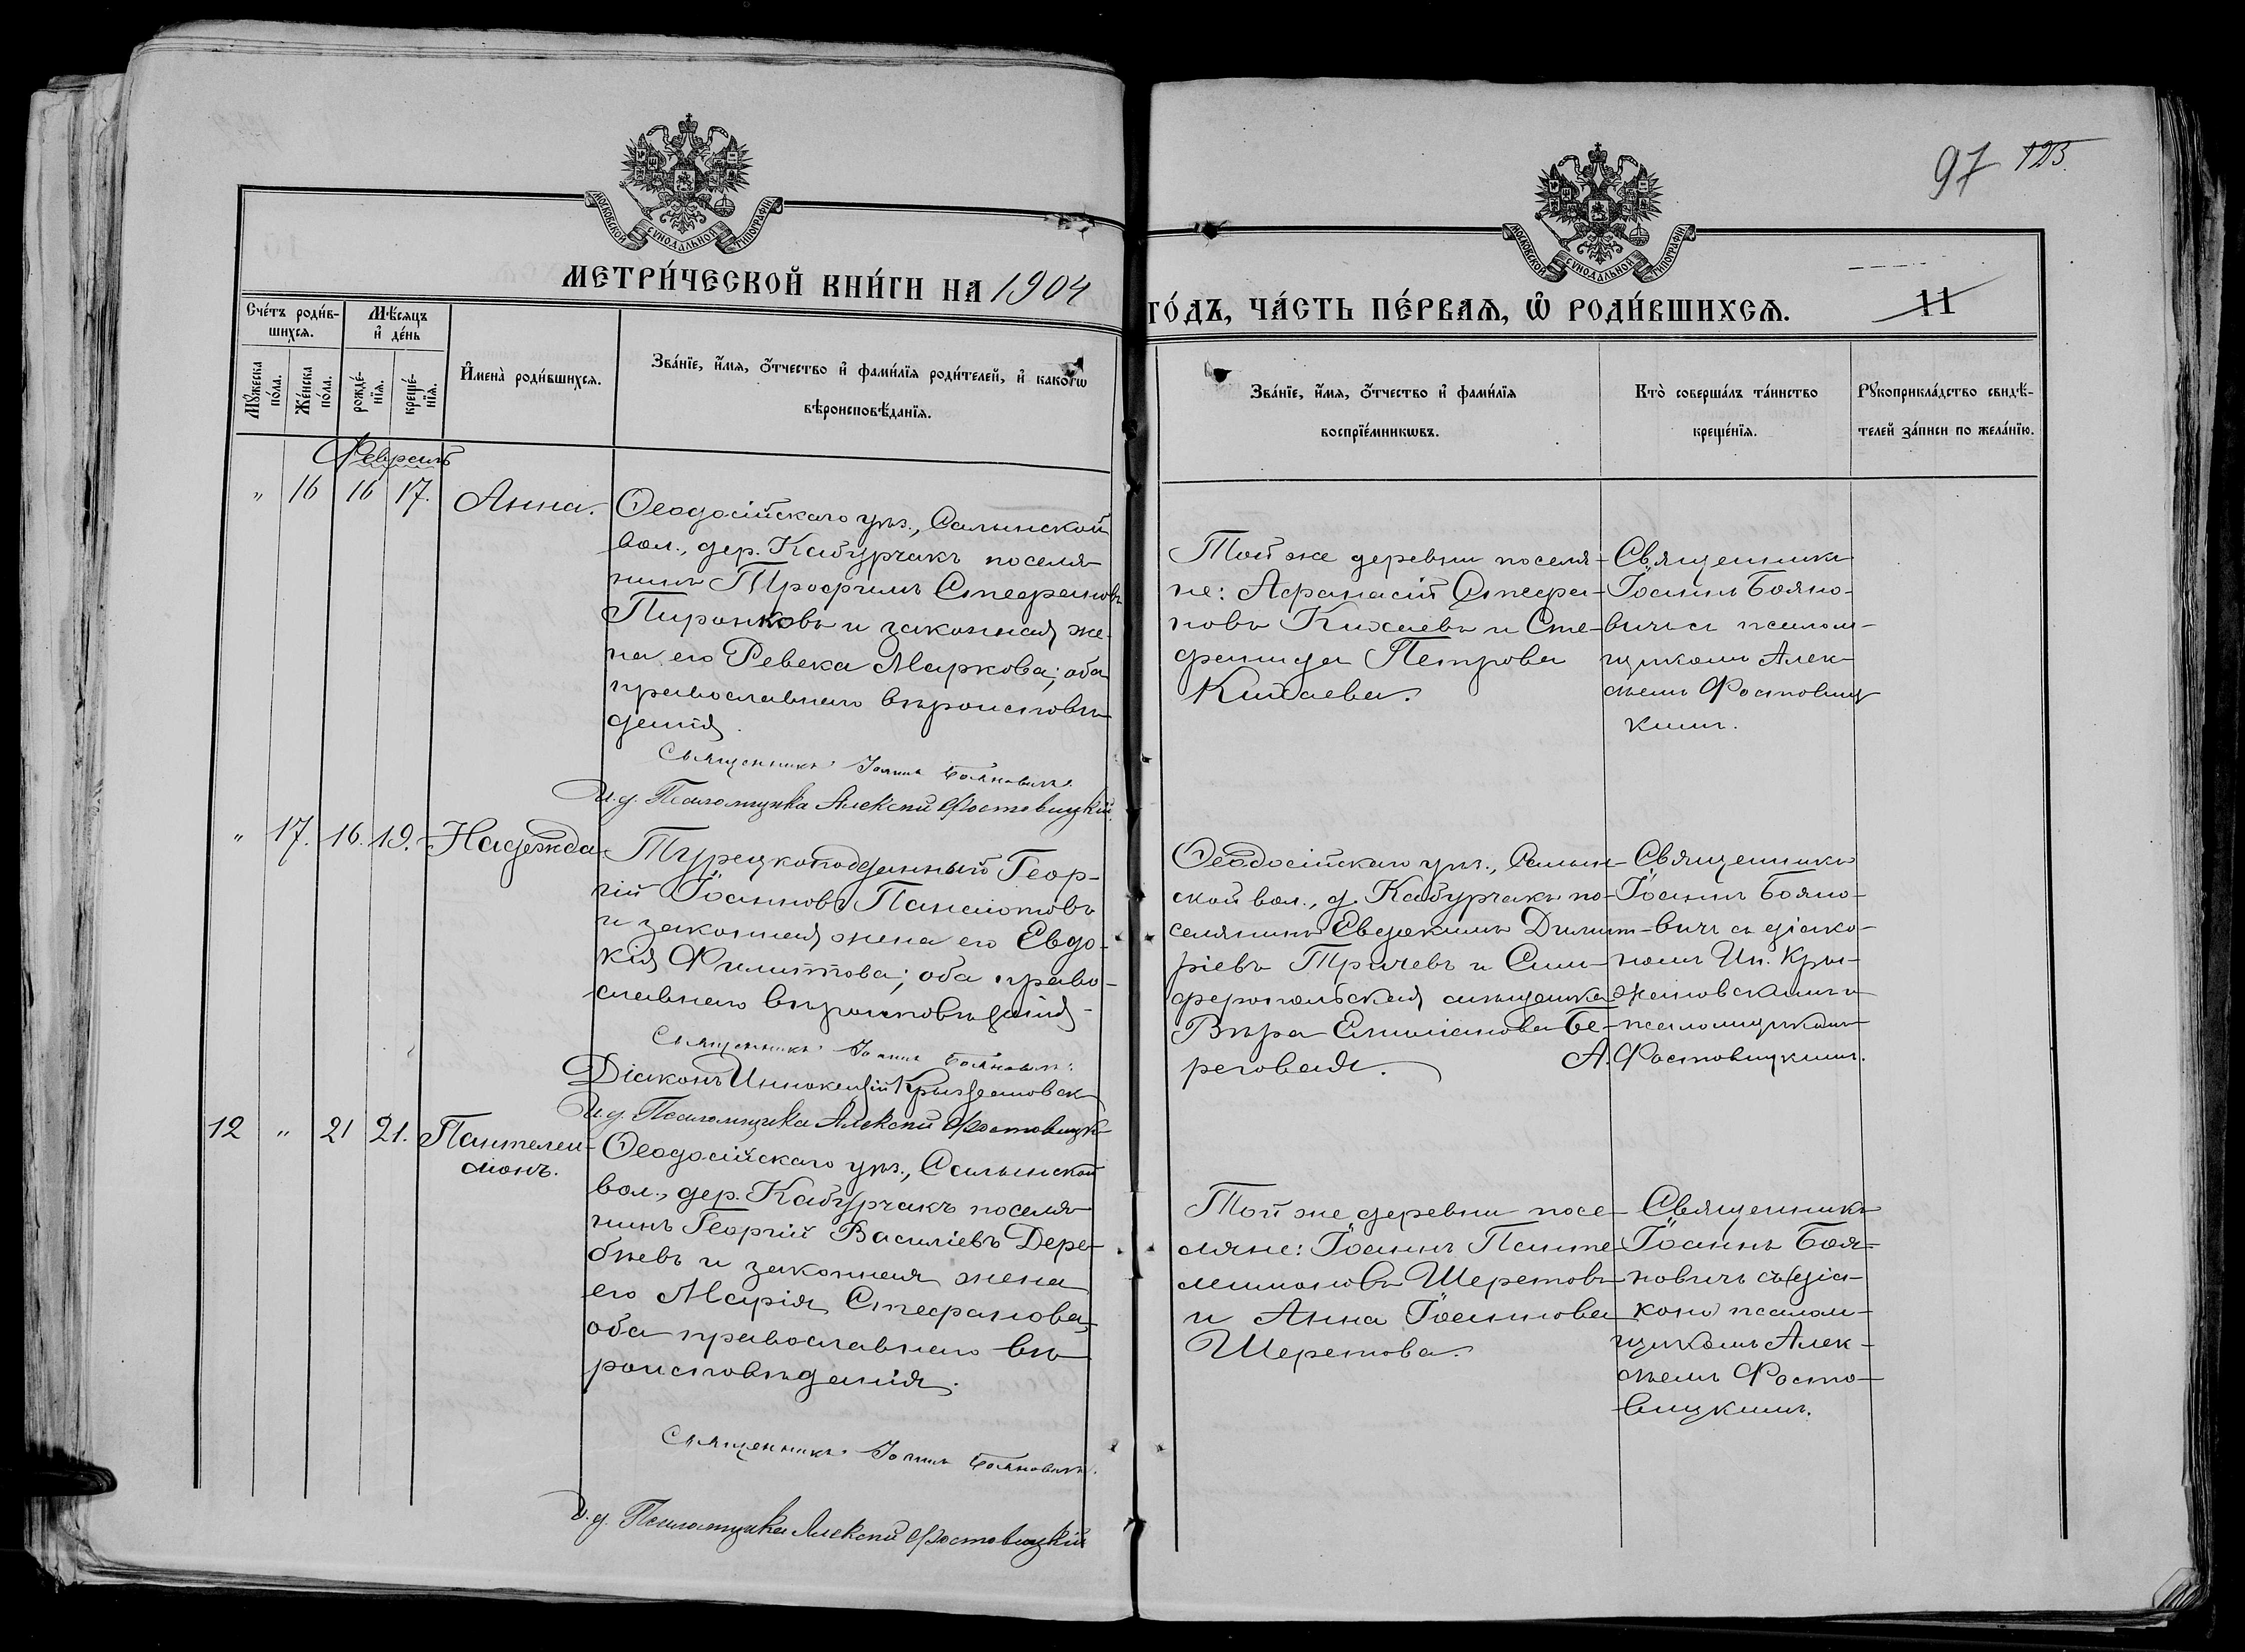 97 123.
МОСКОВСКОЙ СѴНОДАЛЬНОЙ ТИПОГРАФІИ
МОСКОВСКОЙ СѴНОДАЛЬНОЙ ТИПОГРАФІИ
МЕТРИ́ЧЕСКОЙ КНИ́ГИ НА 1904
ГО́ДЪ, ЧА́СТЬ ПЕ́РВАѦ, Ѡ҆ РОДИ́ВШИХСѦ.
11
Сче́тъ роди́в-
шихсѧ.
Мꙋ́жеска по́ла.
Же́нска по́ла.
Мѣ́сѧцъ
и҆ де́нь
рожде́-
нїѧ.
креще́-
нїѧ.
И҆мена̀ роди́вшихсѧ.
Зва́нїе, и҆́мѧ, ѻ҆́тчество и҆ фами́лїѧ роди́телей, и҆ како́гѡ
вѣроисповѣ́данїѧ.
Зва́нїе, и҆́мѧ, ѻ҆́тчество и҆ фами́лїѧ
воспрїе́мникѡвъ.
Кто̀ соверша́лъ та́инство
креще́нїѧ.
Рꙋкоприкла́дство свидѣ́-
телей за́писи по жела́нїю.
Февраль
" 16 16 17. Анна.
Ѳеодосійскаго уѣз., Салынской
вол., дер. Кабурчакъ поселя-
нинъ Трофимъ Стефановъ
Пиронковъ и законная же-
на его Ревека Маркова; оба
православнаго вѣроисповѣ-
данія.
Священникъ Іоаннъ Бояновичъ.
И.д. Псаломщика Алексѣй Фостовицкій.
Той же деревни поселя-
не: Афанасій Стефа-
новъ Кихаевъ и Сте-
фанида Петрова
Кихаева.
Священникъ
Іоаннъ Бояно-
вичъ съ псалом-
щикомъ Алек-
сѣемъ Фостовиц-
кимъ.
" 17. 16. 19. Надежда
Турецкоподданный Геор-
гій Іоанновъ Панаіотовъ
и законная жена его Евдо-
кія Филиппова; оба право-
славнаго вѣроисповѣданія
Священникъ Іоаннъ Бояновичъ.
И.д. Псаломщика Алексѣй Фостовицкій
Ѳеодосійскаго уѣз., Салын-
ской вол., д. Кабурчакъ по-
селянинъ Евдокимъ Димит-
ріевъ Тричевъ и Сим-
феропольская мѣщанка
Вѣра Емиліанова Бе-
реговая.
Священникъ
Іоаннъ Бояно-
вичъ съ діако-
номъ Ин. Кры-
жановскимъ и
псаломщикомъ
А. Фостовицкимъ.
12 " 21 21. Пантелеи-
монъ.
Ѳеодосійскаго уѣз., Салынской
вол., дер. Кабурчакъ поселя-
нинъ Георгій Василіевъ Дере-
бѣевъ и законная жена
его Марія Стефанова,
оба православнаго вѣ-
роисповѣданія.
Священникъ Іоаннъ Бояновичъ.
И.д. Псаломщика Алексѣй Фостовицкій
Той же деревни посе-
ляне: Іоаннъ Панте-
лимоновъ Шеретовъ
и Анна Іоаннова
Шеретова.
Священникъ
Іоаннъ Боя-
новичъ съ (діа-
коно) псалом-
щикомъ Алек-
сѣемъ Фосто-
вицкимъ.